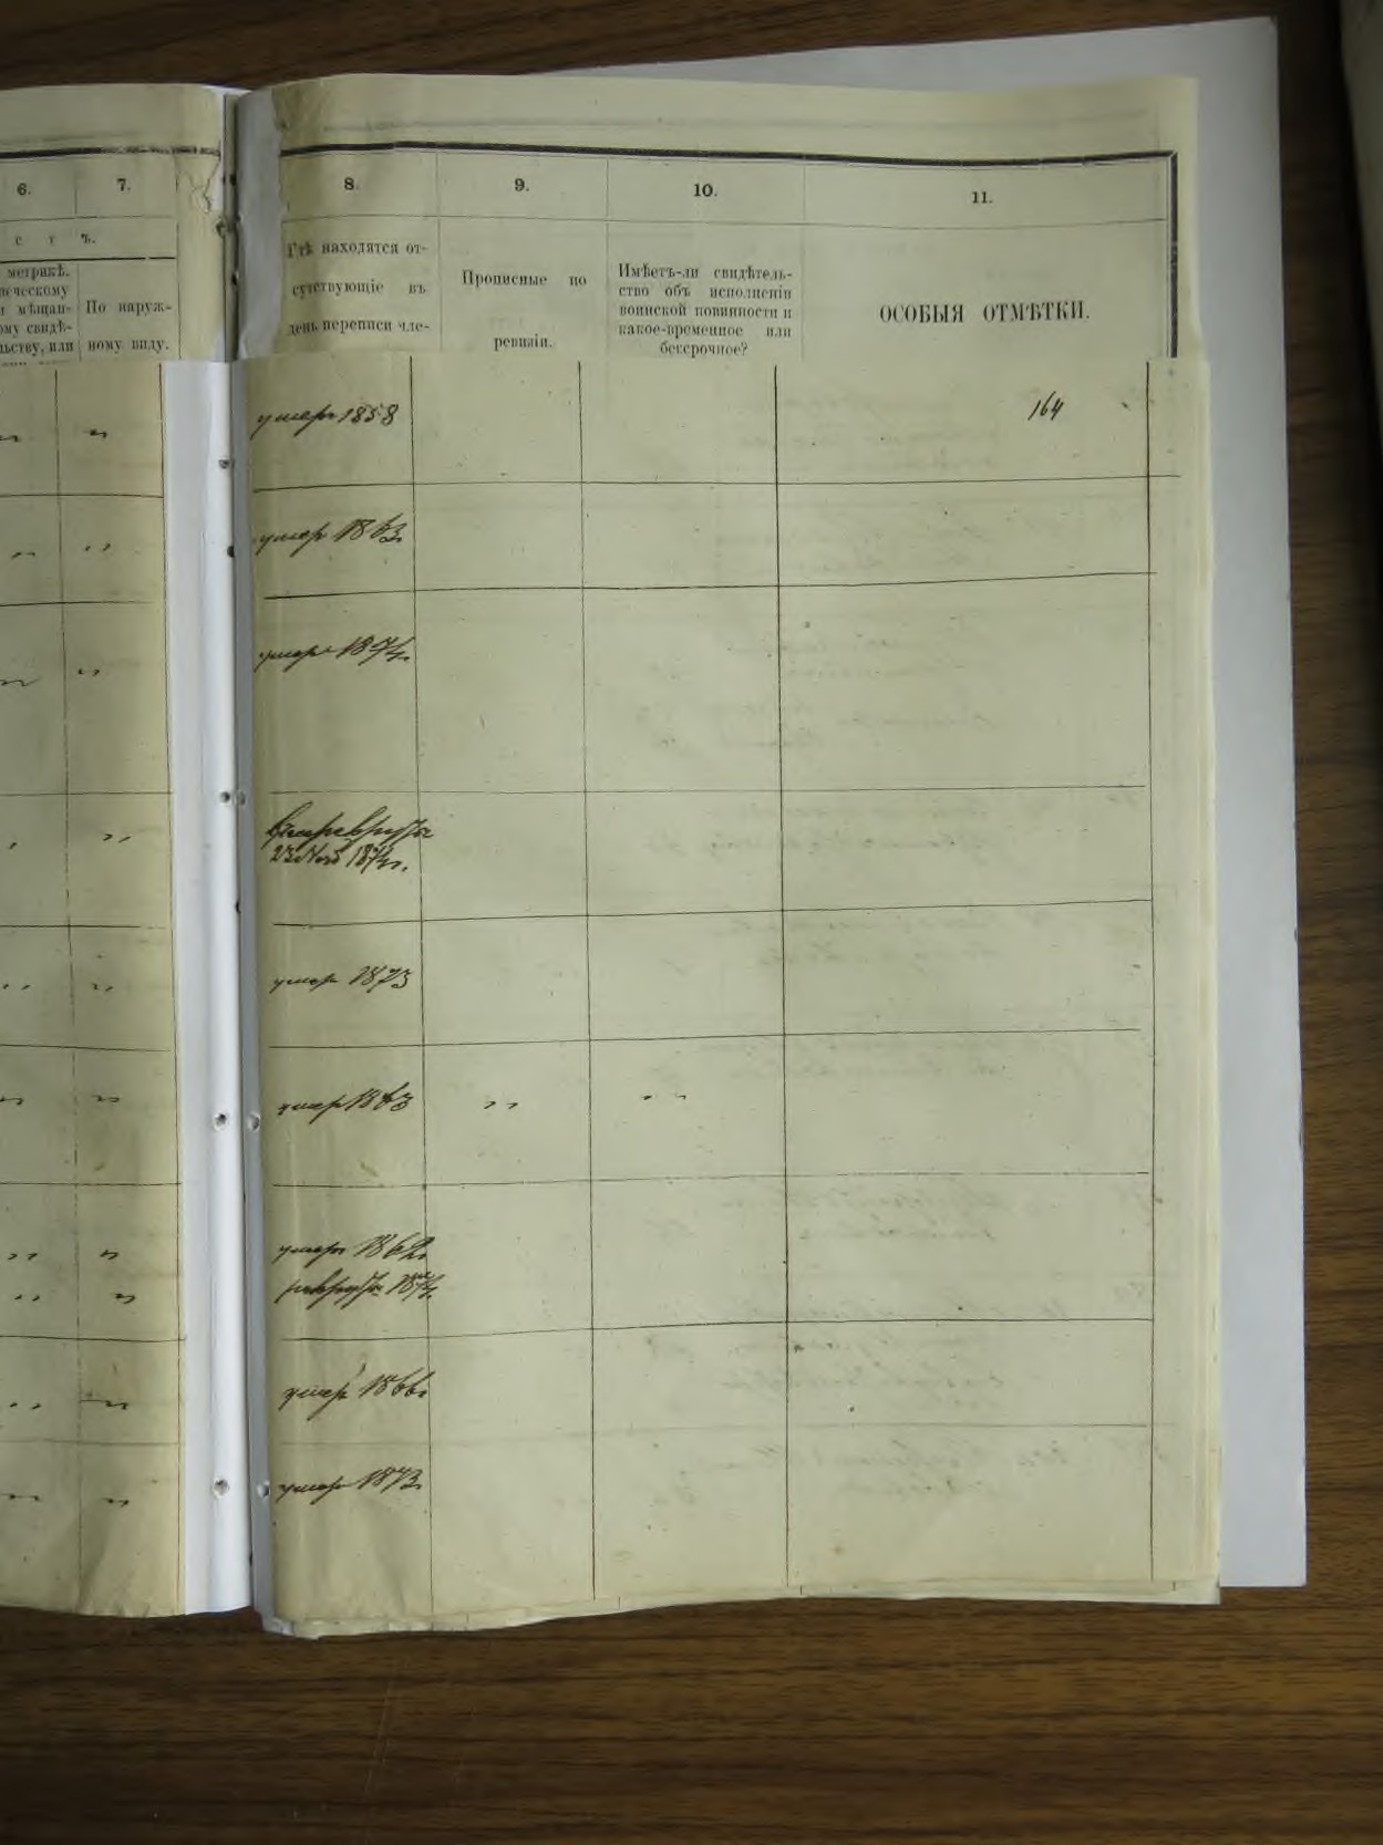 6.
7.
8.
9.
10.
11.
с т ъ.
метрикѣ.
ическому
и мѣщан-
ому свидѣ-
льству, или
По наруж-
ному виду.
Гдѣ находятся от-
сутствующіе въ
день переписи чле-
Прописные по
ревизіи.
Имѣетъ-ли свидѣтель-
ство объ исполненіи
воинской повинности и
какое-временное или
безсрочное?
ОСОБЫЯ ОТМѢТКИ.
умеръ 1858
164
умеръ 1863
умеръ 1874.
1874.
умеръ 1873
умеръ 1863
умеръ 1862
умеръ 1866
умеръ 1873